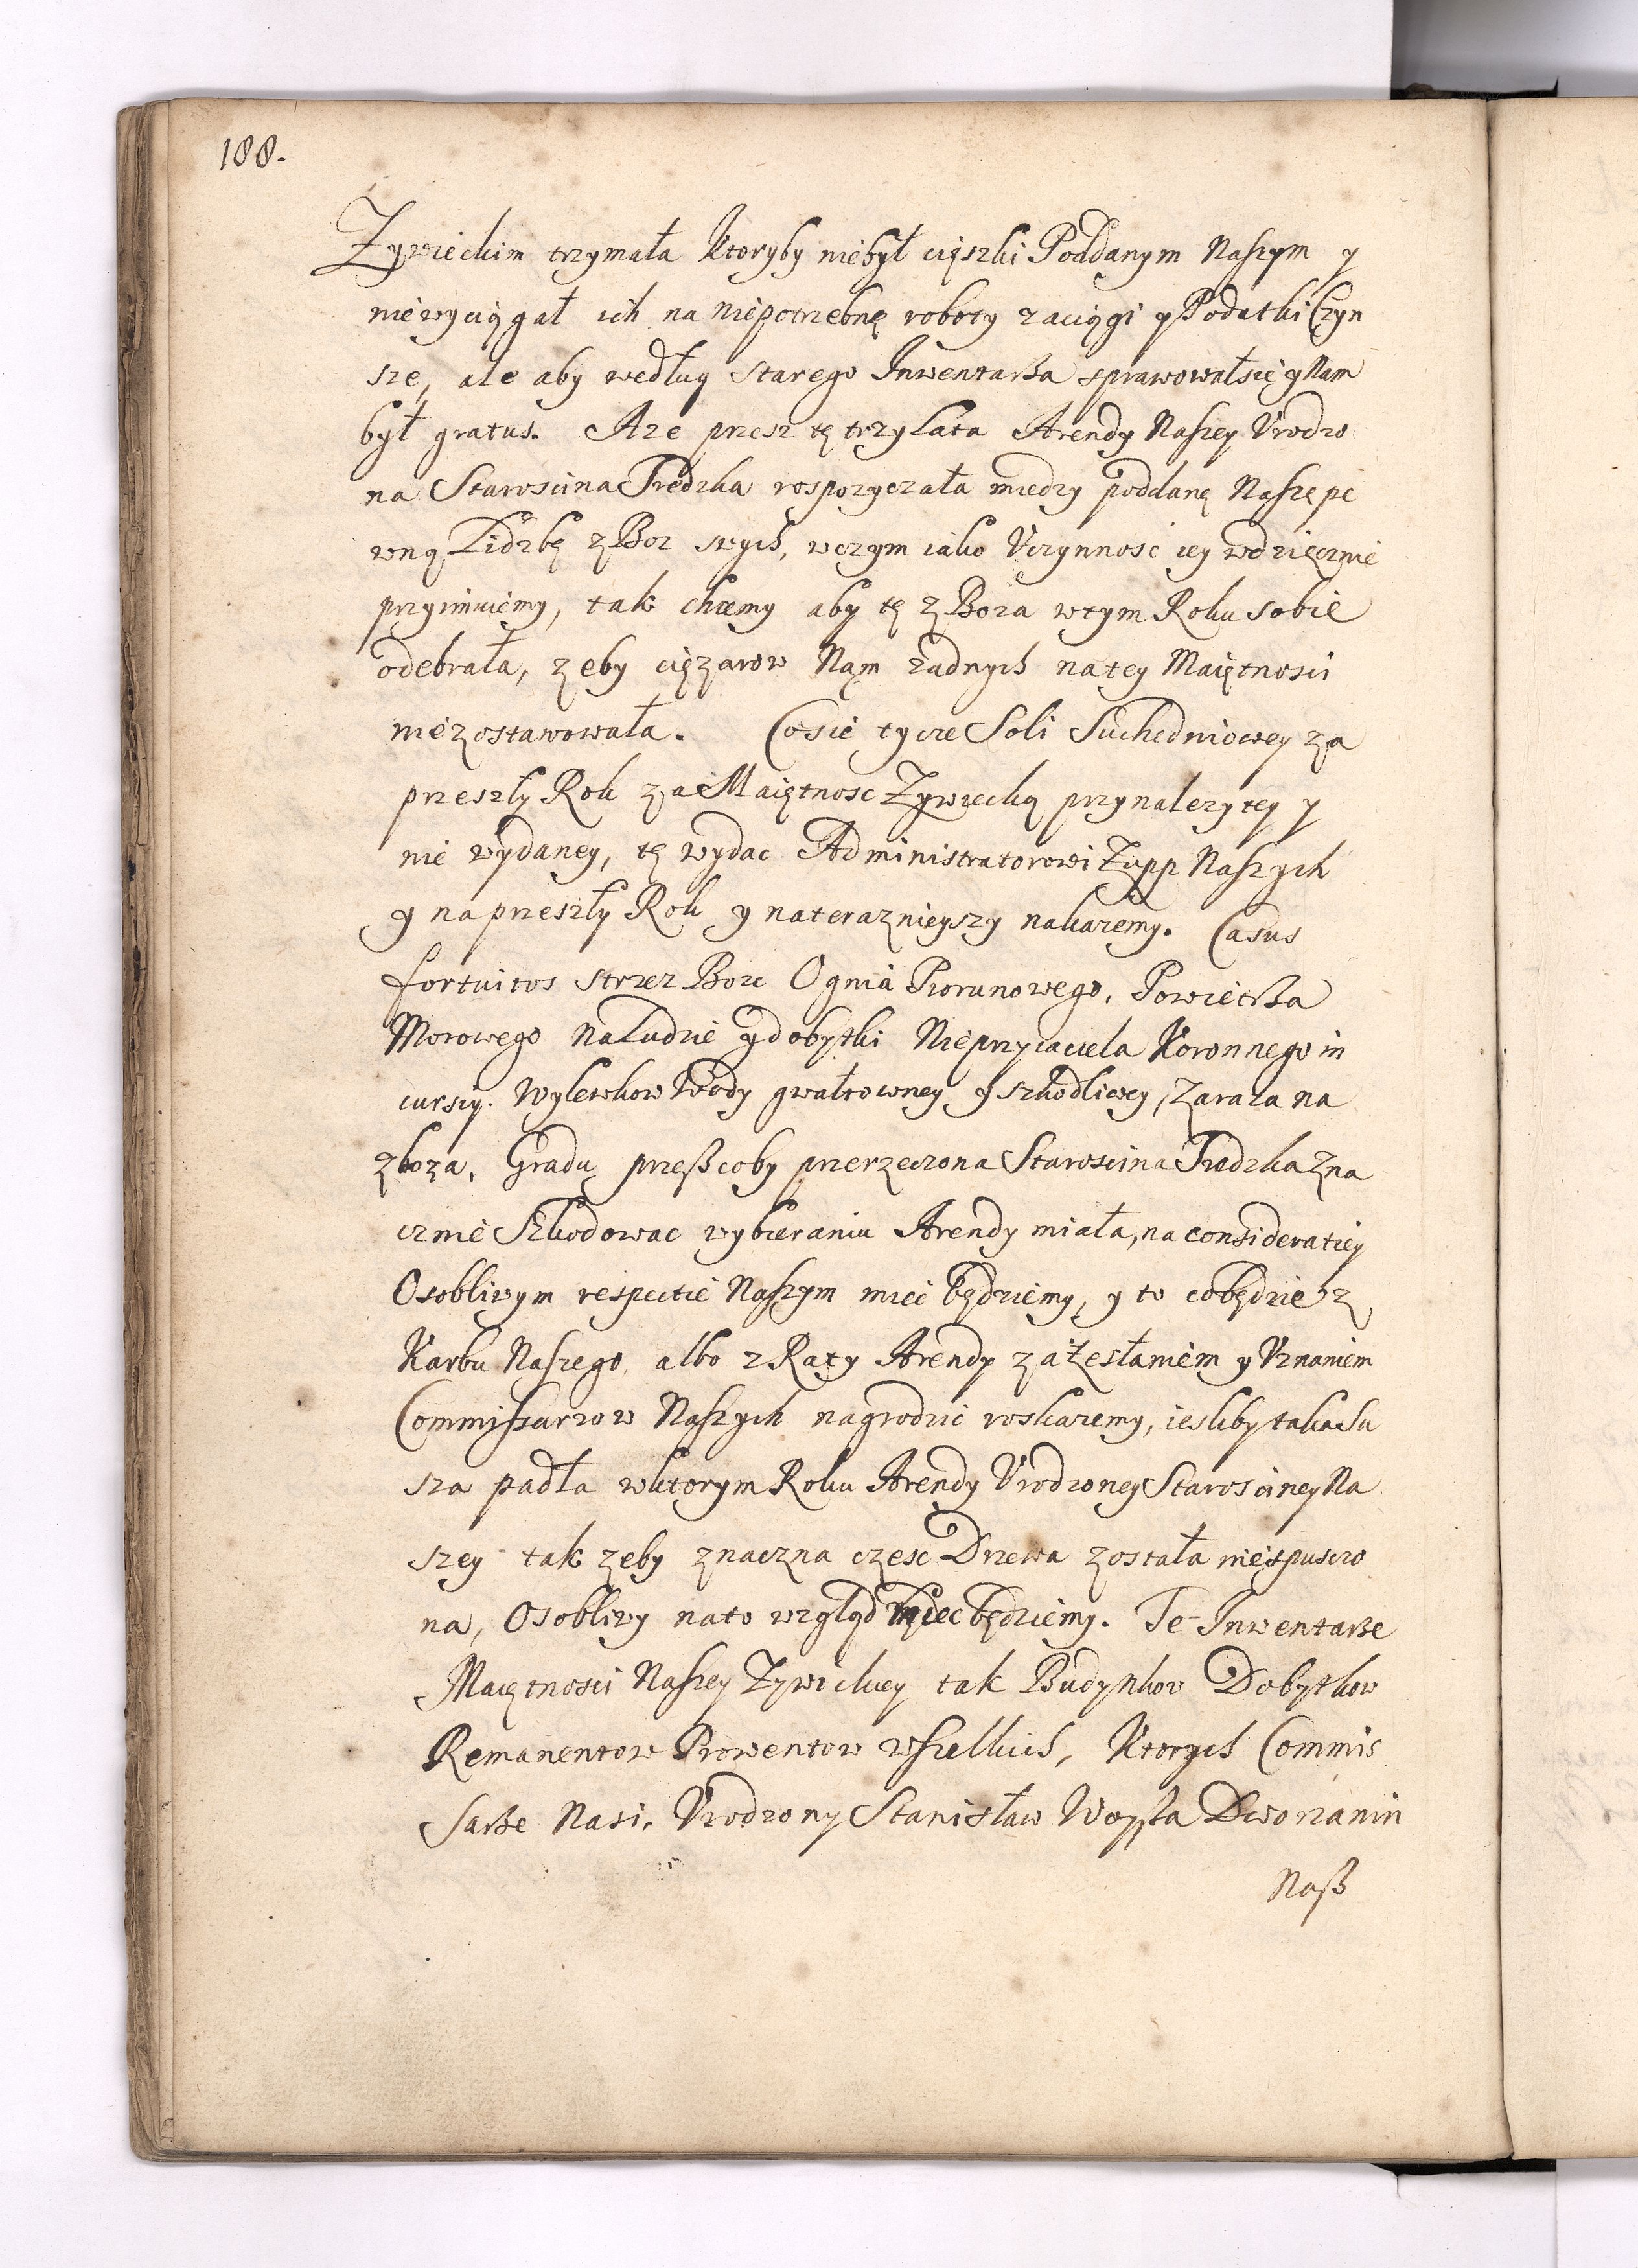 188.
Zywieckim trzymała Ktoryby niebył cięszki Poddanym Naszym y
niewyciągał ich na niepotrzebnę roboty zaciągi y Podatki Czyn
sze, ale aby według starego Inwentarßa sprawowałsię y Nam
był gratus. Aze przesz tę trzy Lata Arendy Naszey Vrodzo
na Starościna Sredzka rospozyczała miedzy poddanę Naszę pe
wną Lidzbę zBoz swych, wczym iako Vczynnosc iey wdzięcznie
przyimuiemy, tak chcemy aby tę zBoza wtym Roku sobie
odebrała, zeby cięzarow Nąm zadnych natey Maiętnosci
niezostawowała. Cosie tycze Soli Suchedniowey za
przeszły Rok za Maiętnosc Zywiecką przynalezytey y
nie wydaney, tę wydac Administratorowi Zupp Naszych
y na przeszły Rok y naterazniejszy nakazemy. Casus
fortuitos strzez Boze Ognia Piorunowego, Powietrßa
Morowego Na Ludzie ydobytki Nieprzyiaciela Koronnego in
cursiy. Wylewkow Wody gwałtowney y szkodliwey, Zaraza na
zboza, Gradu, przeßcoby przerzeczona Starościna Sredzka Zna
cznie Szkodowac wybieraniu Arendy miała, na consideratiey
Osobliwym respectie Naszym miec będziemy, y to cobędzie z
Karbu Naszego, albo z Raty Arendy za Zesłaniem y Vznaniem
Commissarzow Naszych nagrodzic roskazemy, iesliby taka Su
sza padła wktorym Roku Arendy Vrodzoney Starosciney Na
szey tak zeby znaczna częsc Drzewa została niespuszczo
na, Osobliwy nato wzgląd miec będziemy. Te Inwentarße
Maiętnosci Naszey Zywieckiey tak Budynkow Dobytkow
Remanentow Prowentow wszelkich, Ktorych Commis
sarße Nasi, Vrodzony Stanisław Woyßa Dworzanin
Naß